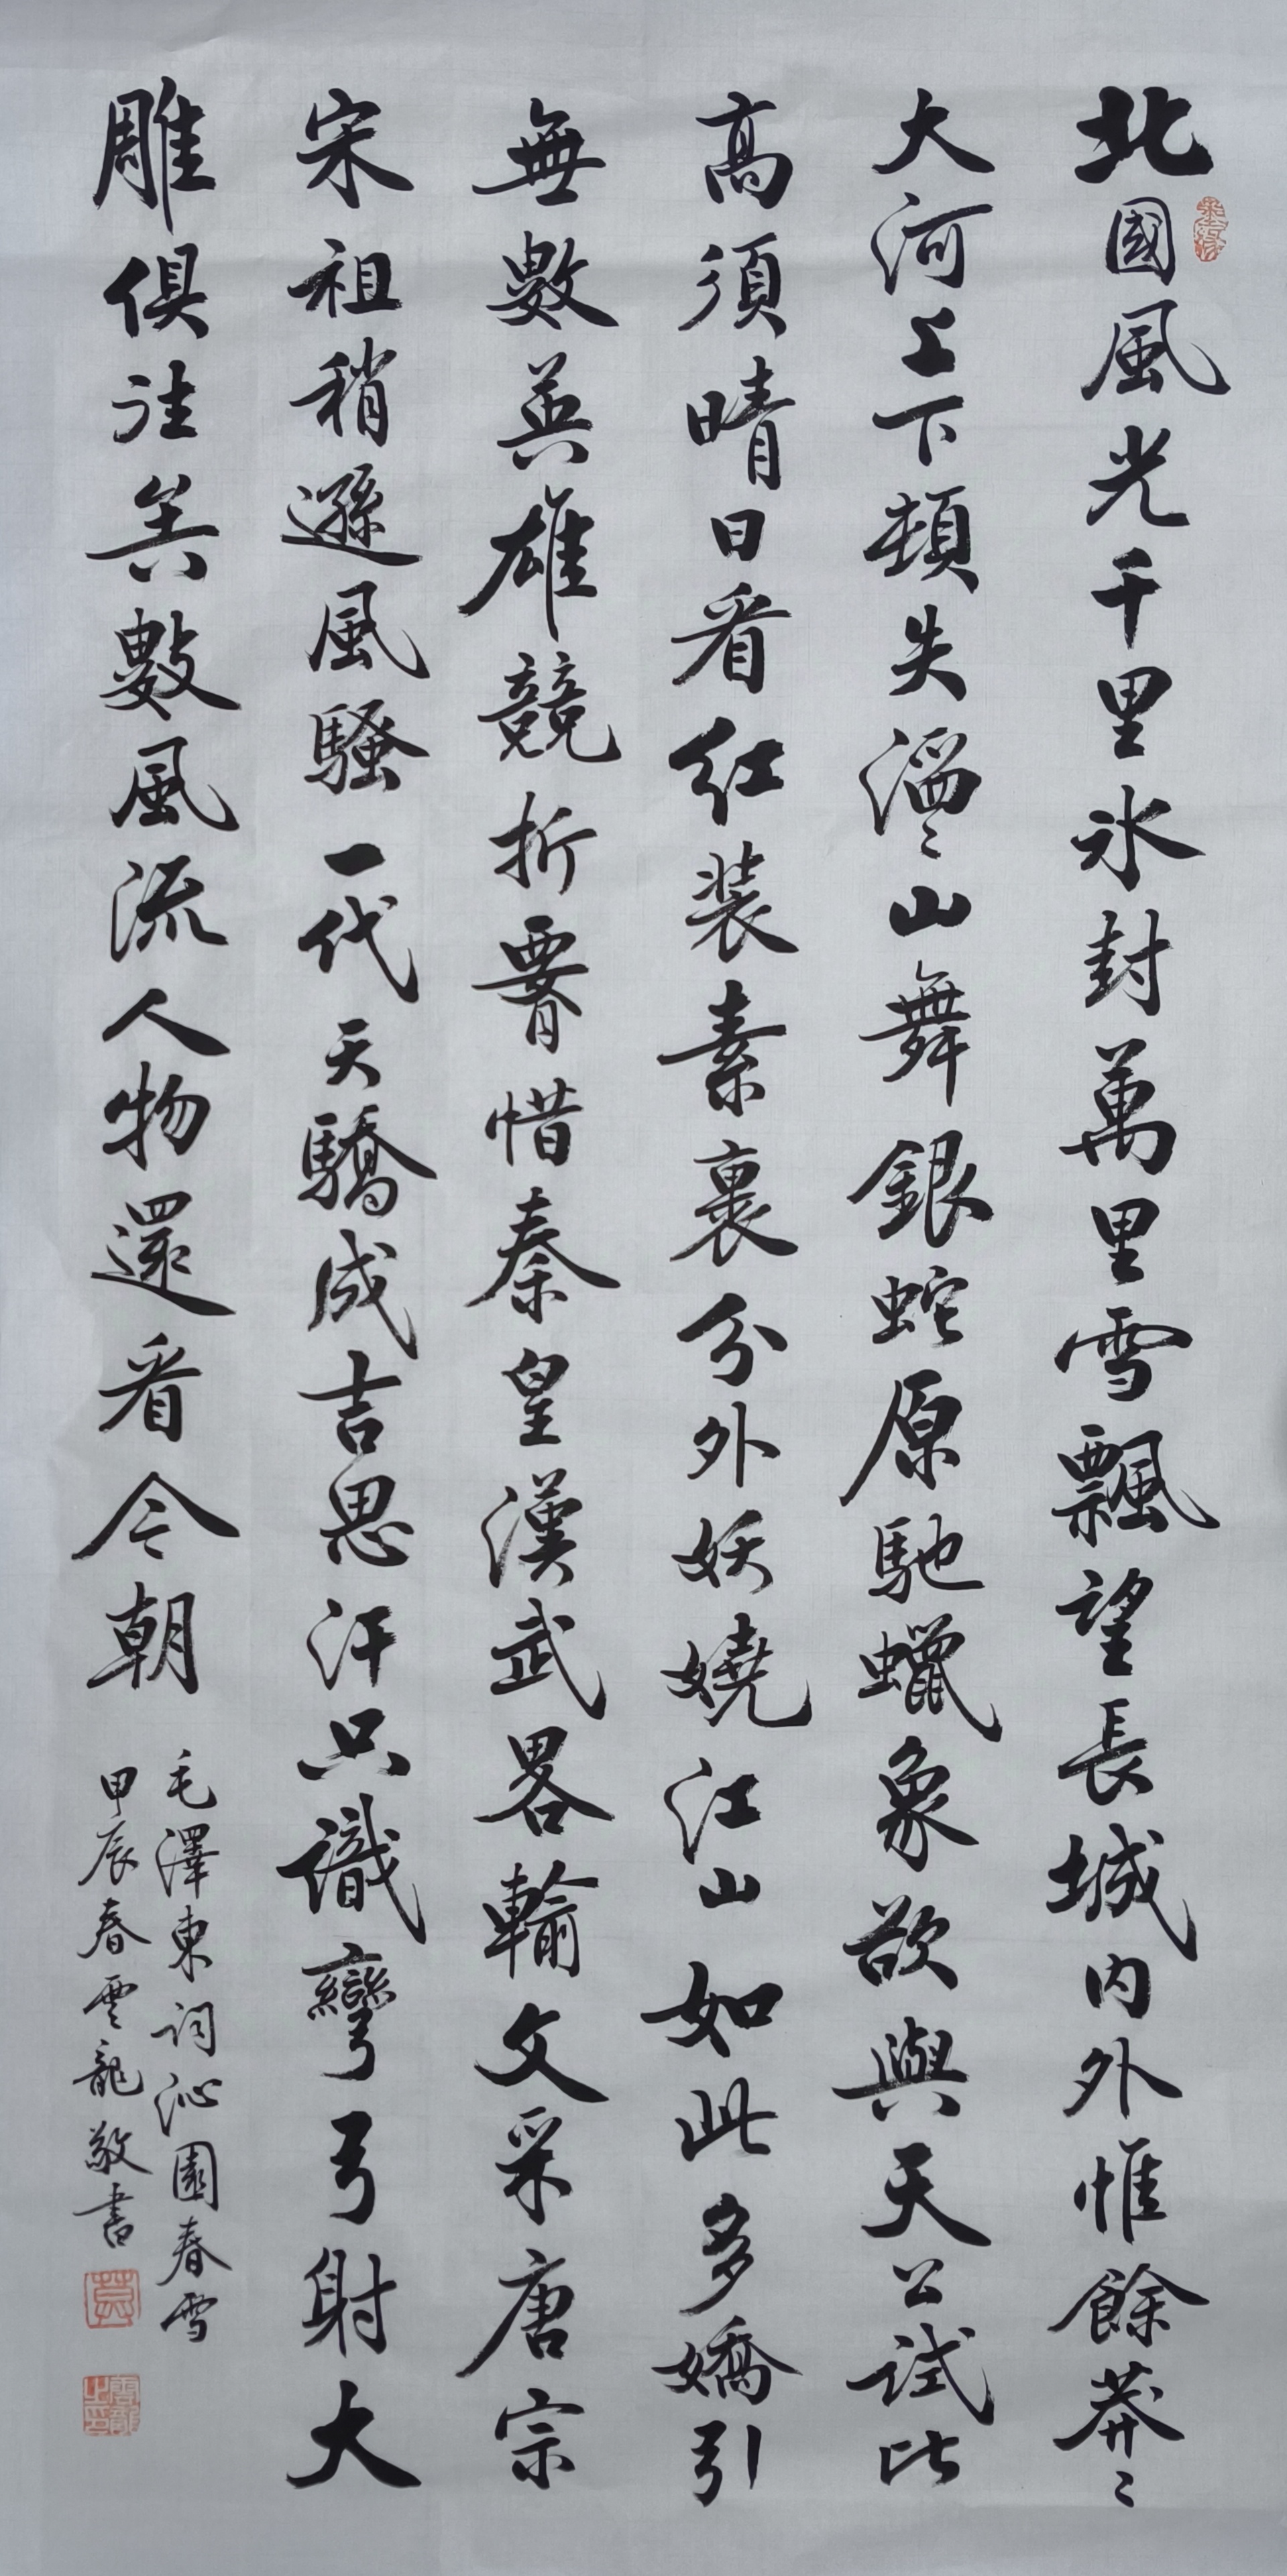 北國風光千里氷封萬里雪飄望長城内外惟餘莽〻
大河上下頓失滔〻山舞銀蛇原馳蠟象欲與天公試比
高須晴日看紅装素裹分外妖嬈江山如此多嬌引
無數英雄競折腰惜秦皇漢武畧輸文采唐宗
宋祖稍遜風騷一代天驕成吉思汗只識彎弓射大
雕俱往矣數風流人物還看今朝
毛澤東詞沁園春雪
甲辰春雲龍敬書
雲龍之印